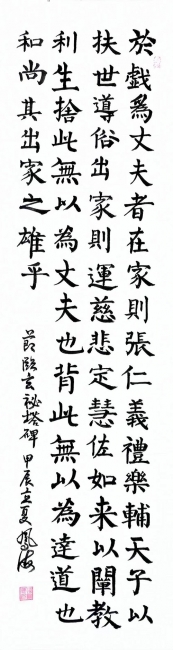 於戲為丈夫者在家則張仁義禮樂輔天子以
扶世導俗出家則運慈悲定慧佐如来以闡教
利生捨此無以為丈夫也背此無以為達道也
和尚其出家之雄乎
節臨玄祕塔碑 甲辰立夏 鳳海